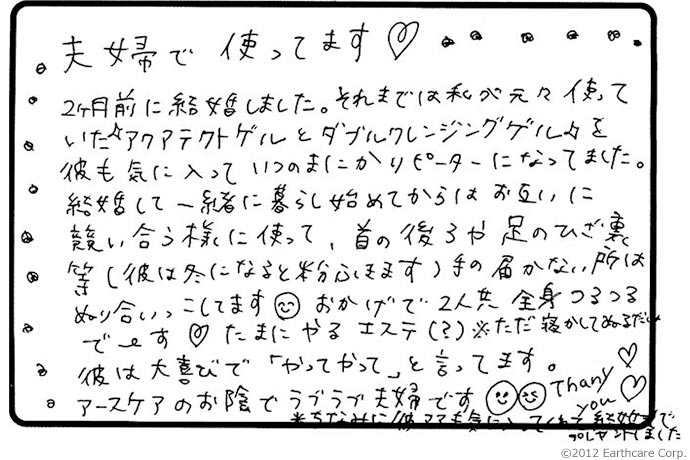 夫婦で 使ってます♡
2ヶ月前に結婚しました。それまでは私が元々使って
いた☆アクアテクトゲルとダブルクレンジングゲル☆を
彼も気に入っていつのまにかリピーターになってました。
結婚して一緒に暮らし始めてからはお互いに
競い合う様に使って、首の後ろや足のひざ裏
等(彼は冬になると粉ふきます)手の届かない所は
ぬり合いっこしてます おかげで2人共 全身つるつる
でーす♡たまにやるエステ(?)※ただ寝かしてぬるだけ
彼は大喜びで「やってやって」と言ってます。
アースケアのお陰でラブラブ夫婦です Thank you♡
*ちなみに彼ママも気に入ってくれて結婚式で
プレゼントしました
©2012 Earthcare Corp.